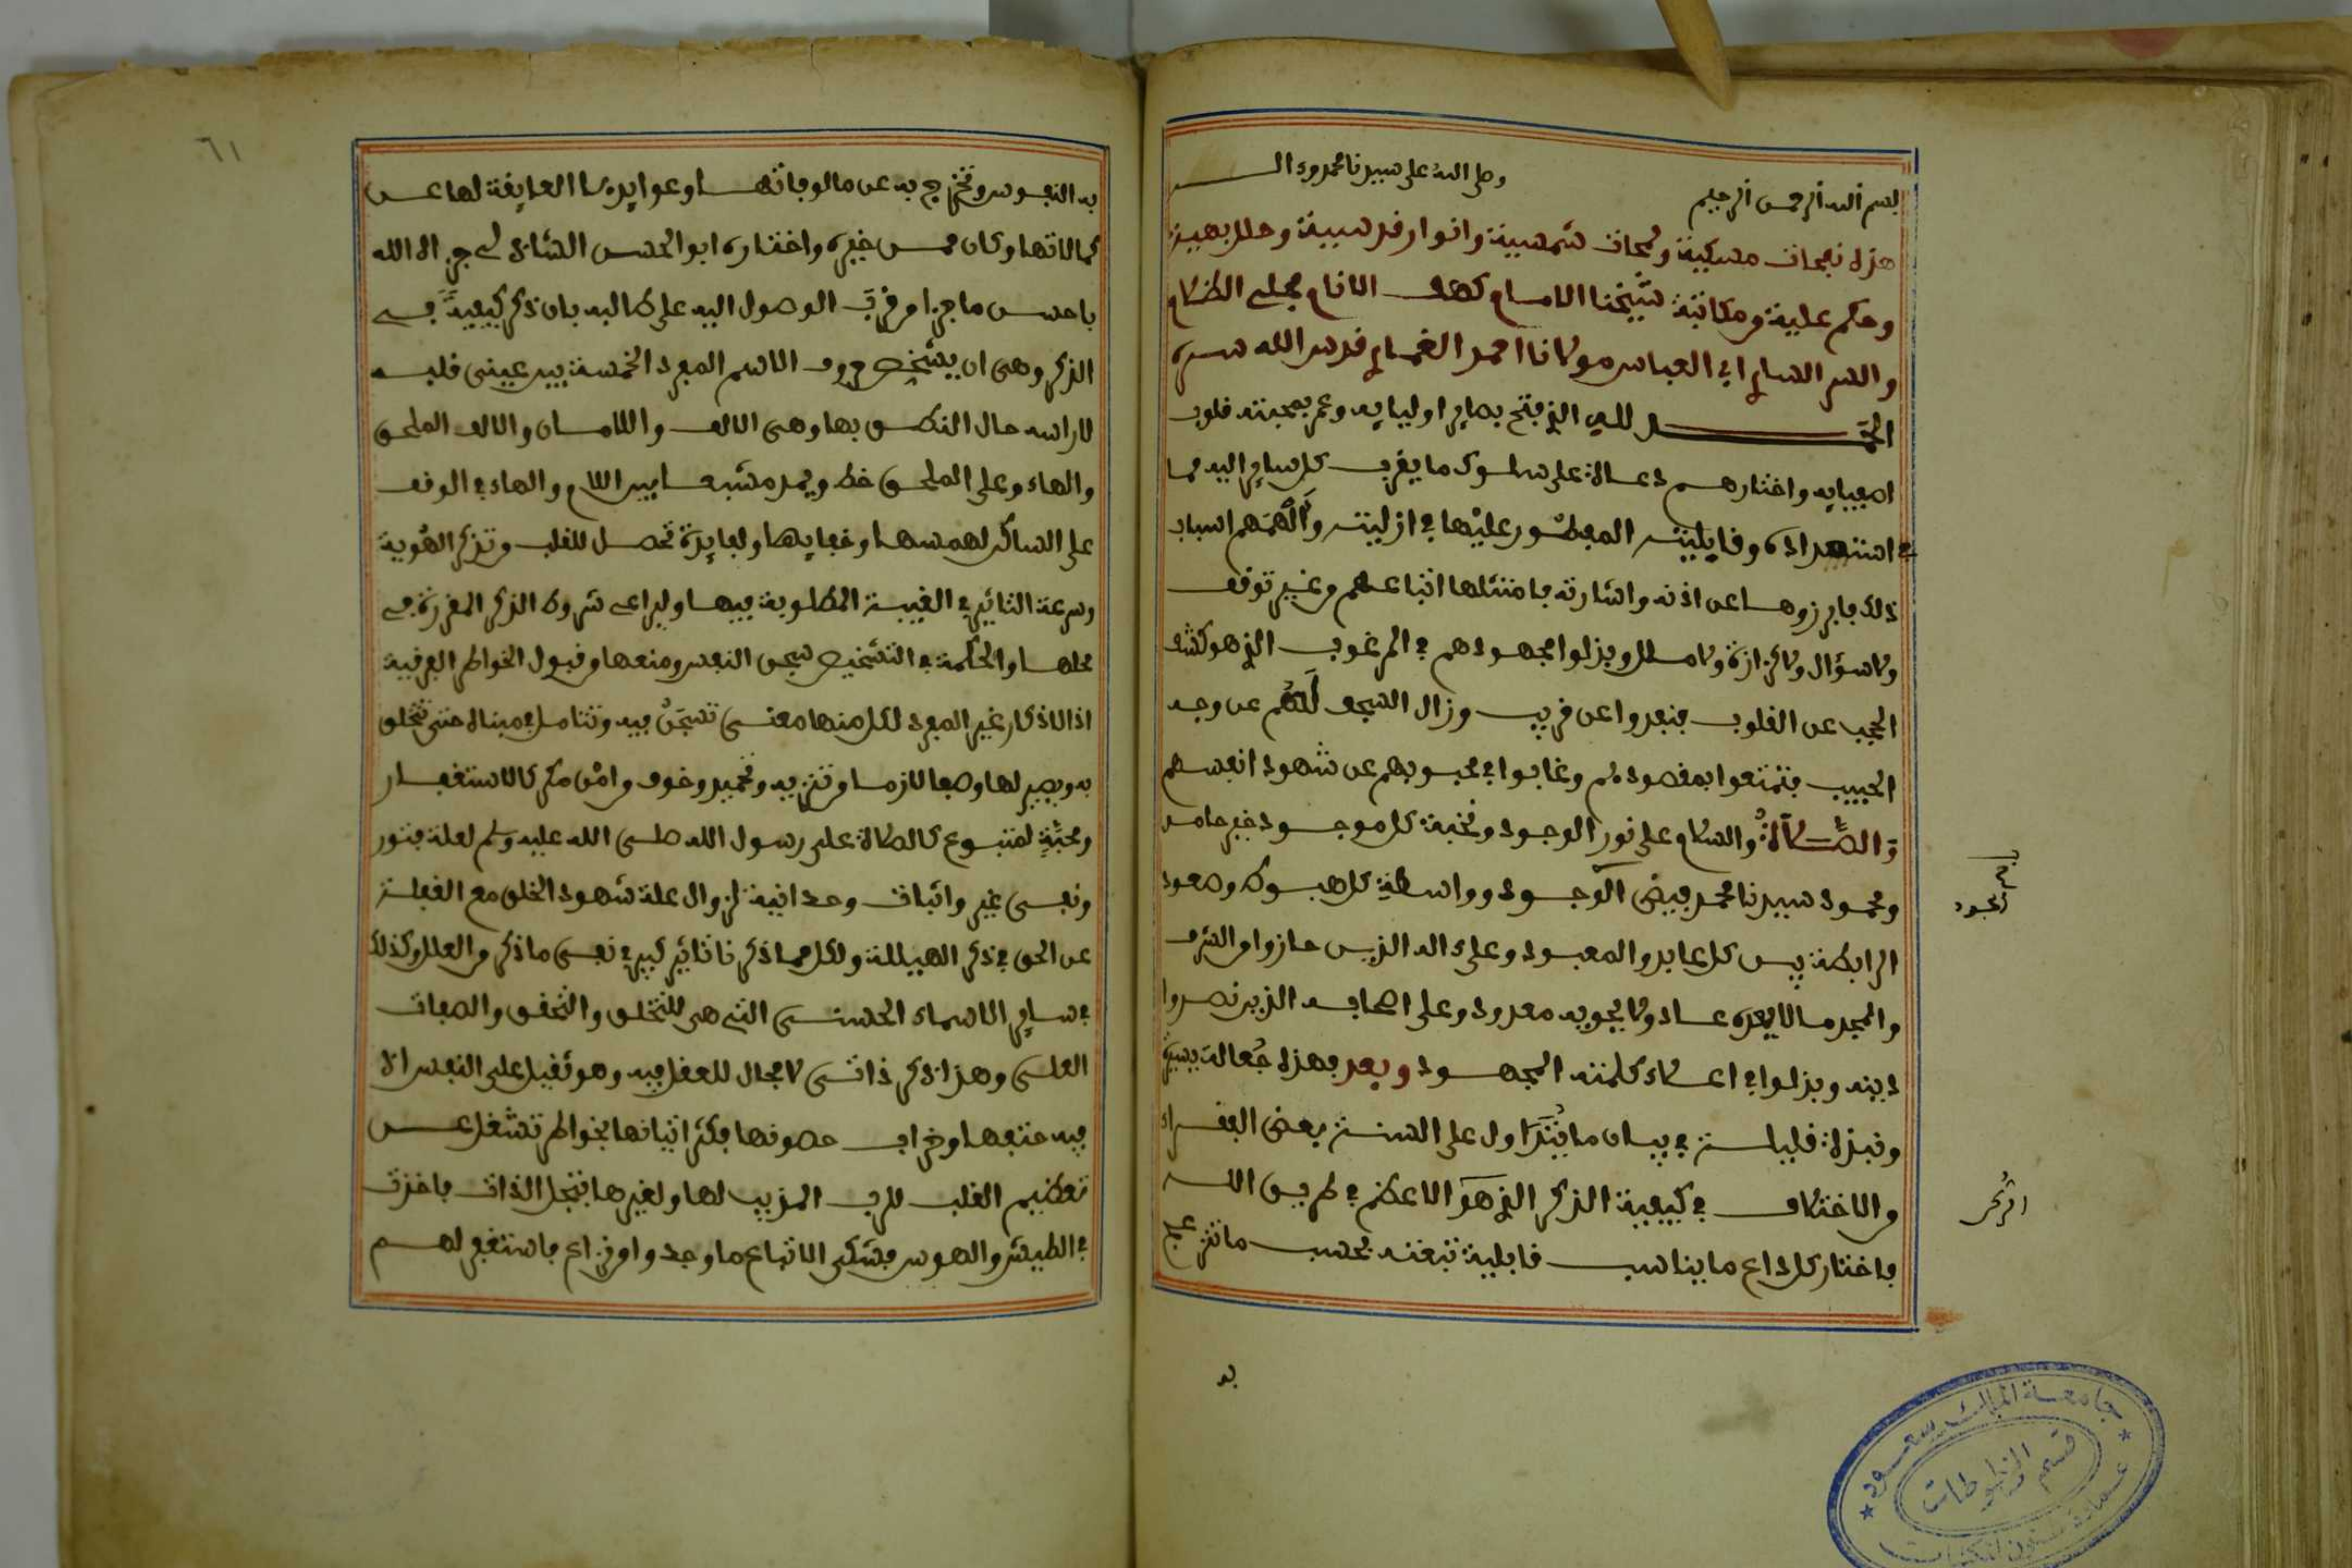 بسم الله الرحمن الرحيم
وصلى الله على سيدنا محمد وءاله
هذه نفحات مسكية ولمحات شمسية وانوار قدسية وحلل بهية
وحكم علية من مكاتبة شيخنا الامام كهف الانام مجلي الظلام
والسر الساري ابي العباس مولانا احمد الغماري قدس الله سره
الحمد لله الذي فتح بصاير اوليايه وعمر بمحبته قلوب
اصفيايه واختارهم دعاة على سلوك ما يقرب كل ساير اليه مما
في استعداده وقابليته المفطور عليها في ازليته وألهمهم اسباب
ذلك فابرزوها عن اذنه واشارته فامتثلها اتباعهم من غير توقف
ولا سؤال ولا كزازة ولا ملل وبذلوا مجهودهم في المرغوب الذي هو كشف
الحجب عن القلوب فنفذوا عن قريب وزال السجف لهم عن وجه
الحبيب فتمتعوا بمقصودهم وغابوا في محبوبهم عن شهود انفسهم
والصلاة والسلام على نور الوجود ونخبة كل موجود خير حامد
ومحمود سيدنا محمد فيض الجود وواسطة كل هبوط وصعود
الرابطة بين كل عابد والمعبود وعلى ءاله الذين حازوا من الشرف
والمجد ما لا يعده عاد ولا يحويه معدود وعلى اصحابه الذين نصروا
دينه وبذلوا في اعلاء كلمته المجهود وبعد فهذه جعالة يسيرة
ونبذة قليلة في بيان ما يتداول على السنة بعض الفقراء
والاختلاف في كيفية الذكر الذي هو الاعظم في طريق الله
فاختار كل داع ما يناسب قابلية تبعته بحسب ما تنزعج
بحر الجود
الركن
به
جامعة الملك سعود
قسم المخطوطات
عمادة شئون المكتبات
٦١
به النفوس وتخرج به عن مالوفاتها وعوايدها العايقة لها عن
كمالاتها وكان ممن خيره واختاره ابو الحسن الشاذلي جزاه الله
باحسن ما جزا من قرب الوصول اليه على طالبه بان ذكر كيفية في
الذكر وهي ان يشخص حروف الاسم المفرد الخمسة بين عيني قلبه
لا راسه حال النطق بها وهي الالف واللامان والالف الملحق
والهاء وعلى الملحق خط ويمد مشبعا بين اللام والهاء في الوقف
على الساكن لهمسها وخفايها ولفايدة تحصل للقلب وتذكر الهوية
وسرعة التاثير في الغيبة المطلوبة فيها وليراعى شروط الذكر المقررة في
محلها والحكمة في التشخيص سجن النفس ومنعها من قبول الخواطر الفرقية
اذ الاذكار غير المفرد لكل منها معنى تسجن فيه وتتامل في مبناه حتى تتخلق
به ويصير لها وصفا لازما من تنزيه وتحميد وخوف من امن مكر كالاستغفار
ومحبة لمتبوع كالصلاة على رسول الله صلى الله عليه وسلم لعلة فتور
ونفي غير واثبات وحدانية لزوال علة شهود الخلق مع الغفلة
عن الحق في ذكر الهيللة ولكل مما ذكرنا تاثير كبير في نفي ما ذكر من العلل وكذلك
في ساير الاسماء الحسنى التي هي للتخلق والتحقق والصفات
العلى وهذا ذكر ذاتي لا مجال للعقل فيه وهو ثقيل على النفس اذ
فيه حتفها وخراب حصونها فكثر اتيانها بخواطر تشغل عن
تعظيم القلب للرب المذيب لها ولغيرها بتجل الذات فاخذت
في الطيش والهوس فشكى الاتباع ما وجدوا من نزاع فاستغفر لهم